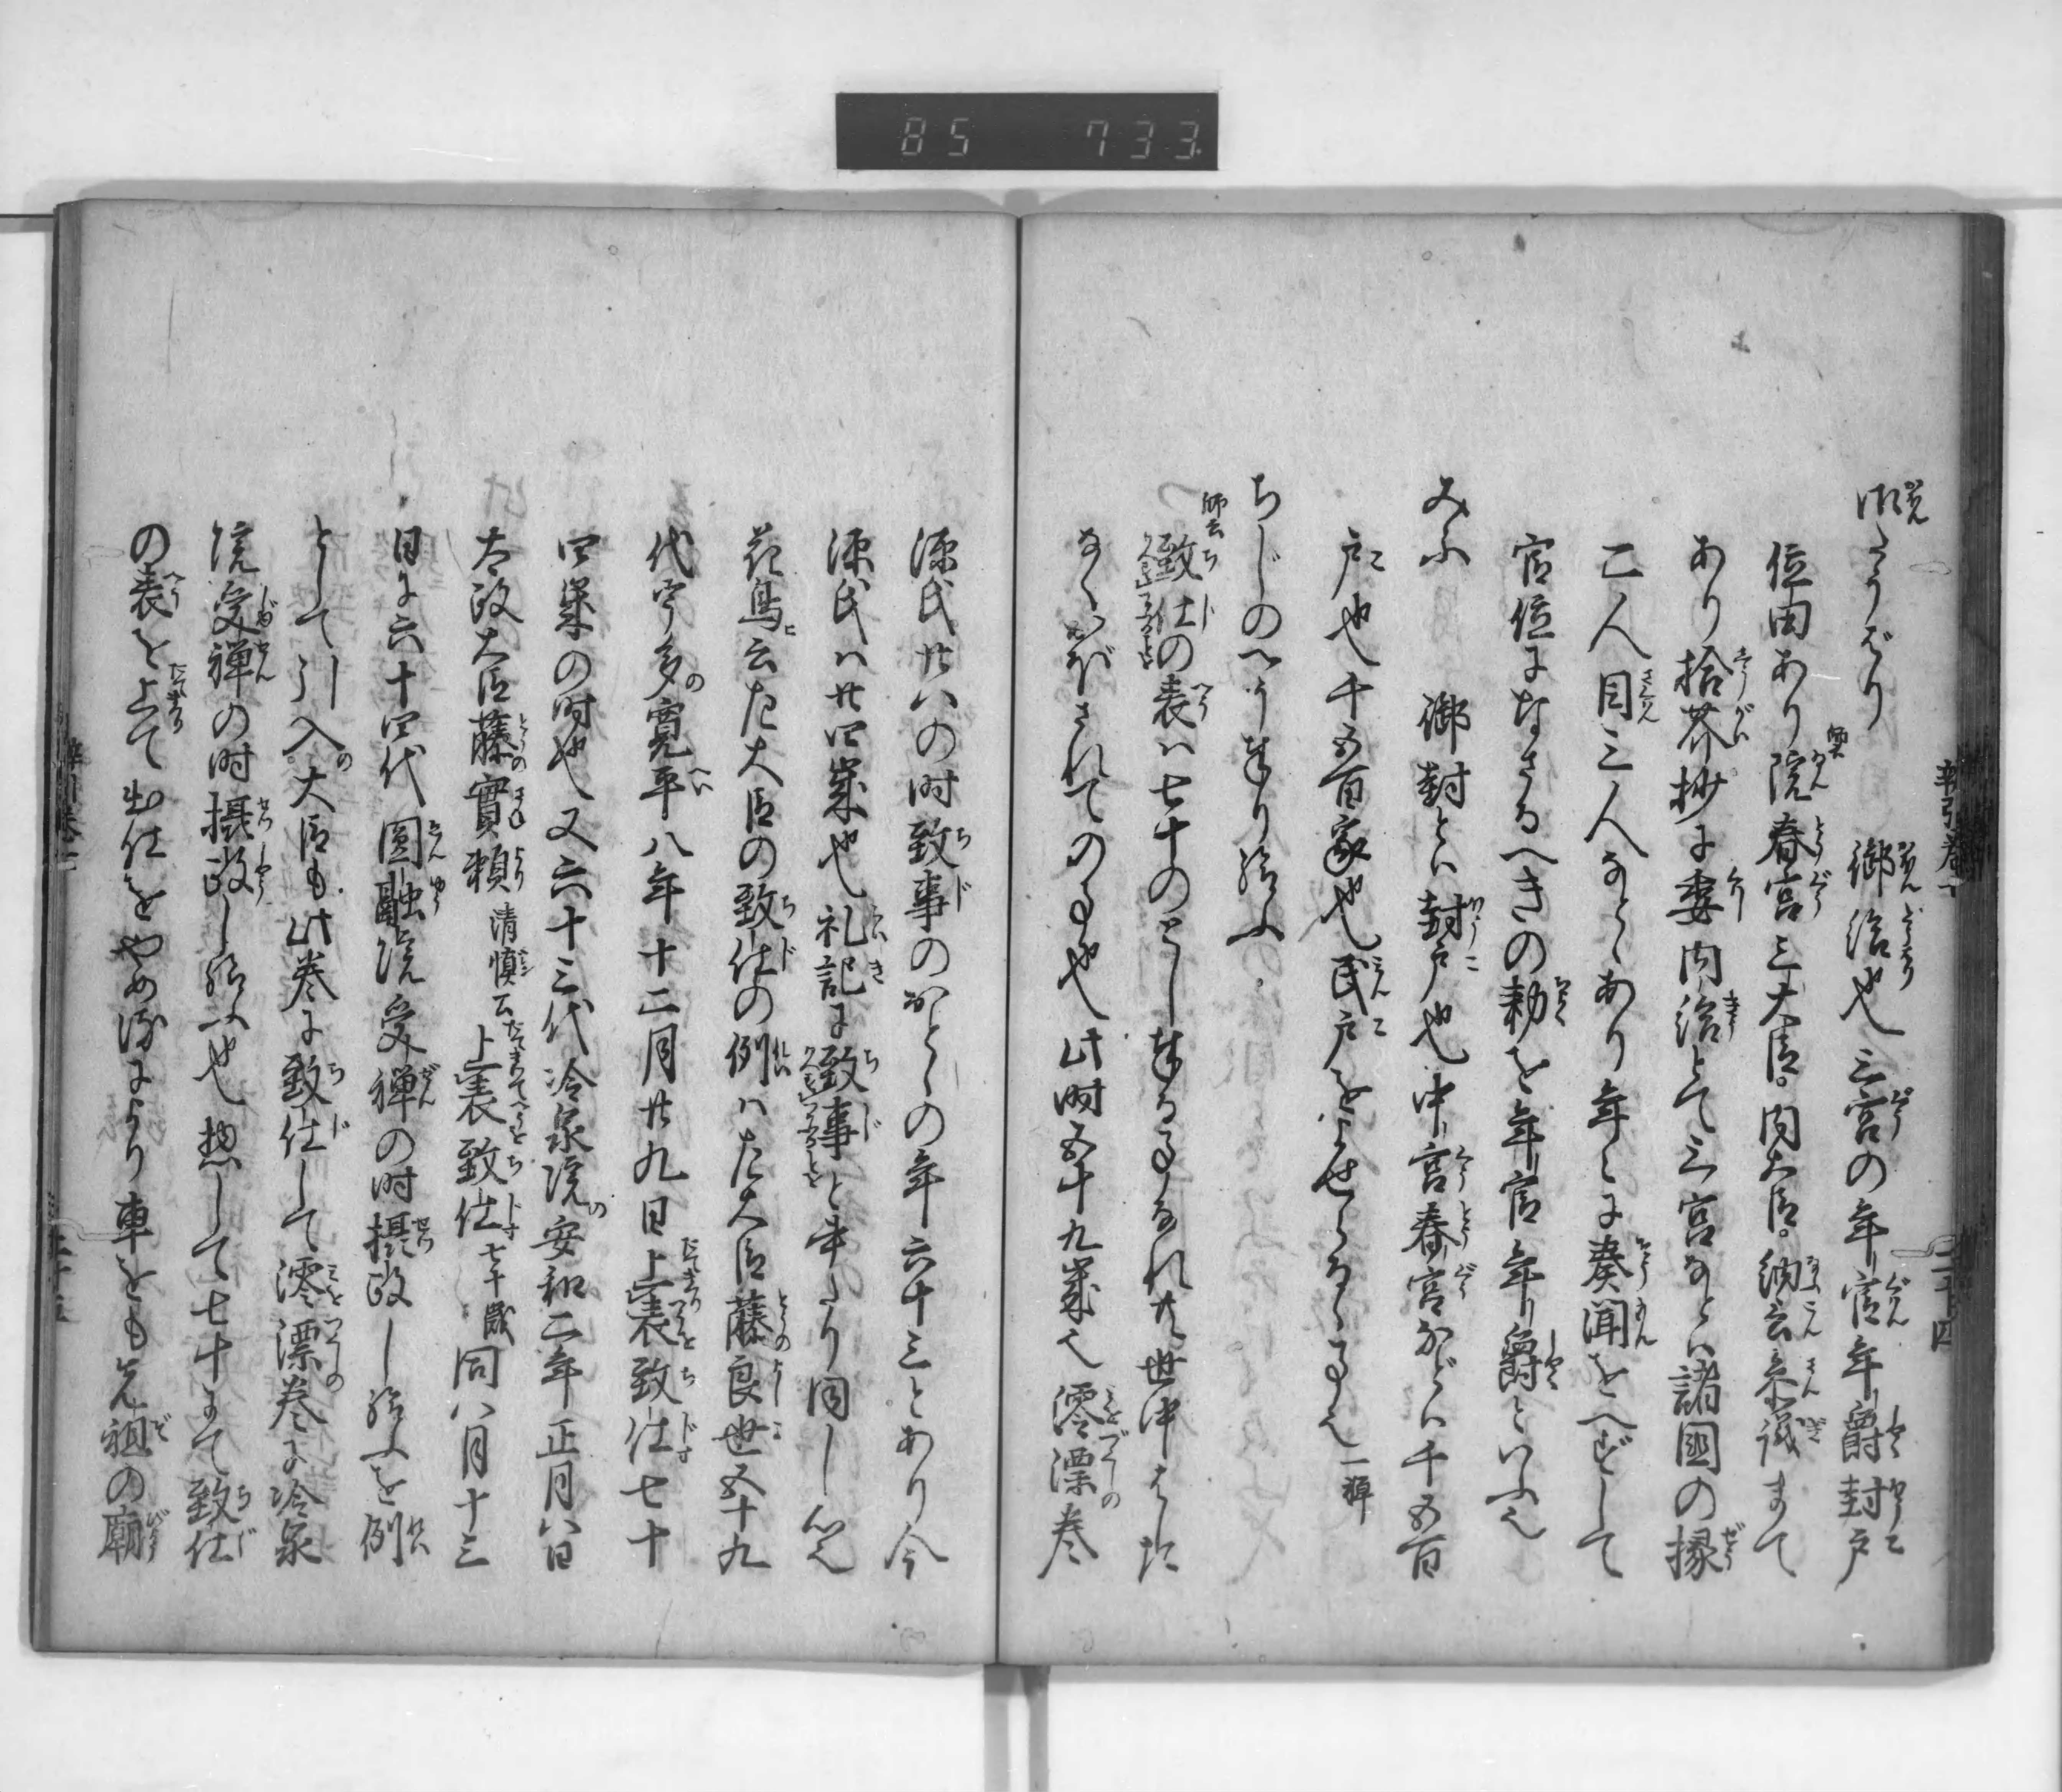 85 733
御たうばり　御給也三宮の年官年爵封戸
位田あり院春宮三大臣。内大臣。納言参議まて
あり拾芥抄に妻内給とて三宮なとハ諸国の掾
二人目三人なとゝあり年々に奏聞をへずして
官位になさるへきの勅を年官年爵といふ也
みふ　御封とハ封戸也中宮春宮などハ千五百
戸也千五百家也民戸をよせらるゝ事也
ちじのへう奉り給ふ
師云 致仕の表ハ七十のとし奉る事なれ共世中はした
なくおぼされての事也此時五十九歳也澪漂巻
源氏廿八の时致事のおとゝの年六十三とあり今
源氏ハ廿四歳也礼記に致事と書たり同し心也
花鳥云左大臣の致仕の例ハ左大臣藤良世五十九
代宇多寛平八年十二月廿九日上表致仕七十
四歳の时也又六十三代冷泉院安和二年正月八日
太政大臣藤實頼 清慎公 上表致仕 七十歳 同八月十三
日に六十四代圓融院受禅の时摂政し給ふを例
として引入大臣も此巻に致仕して澪漂巻に冷泉
院受禅の时摂政し給へ也惣して七十まて致仕
の表を上て出仕をやめ侍により車をも先祖の廟